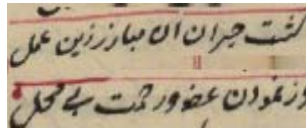 گشت حیران آن مبارز زین عمل
وز نمودن عفو و رحمت بی محل